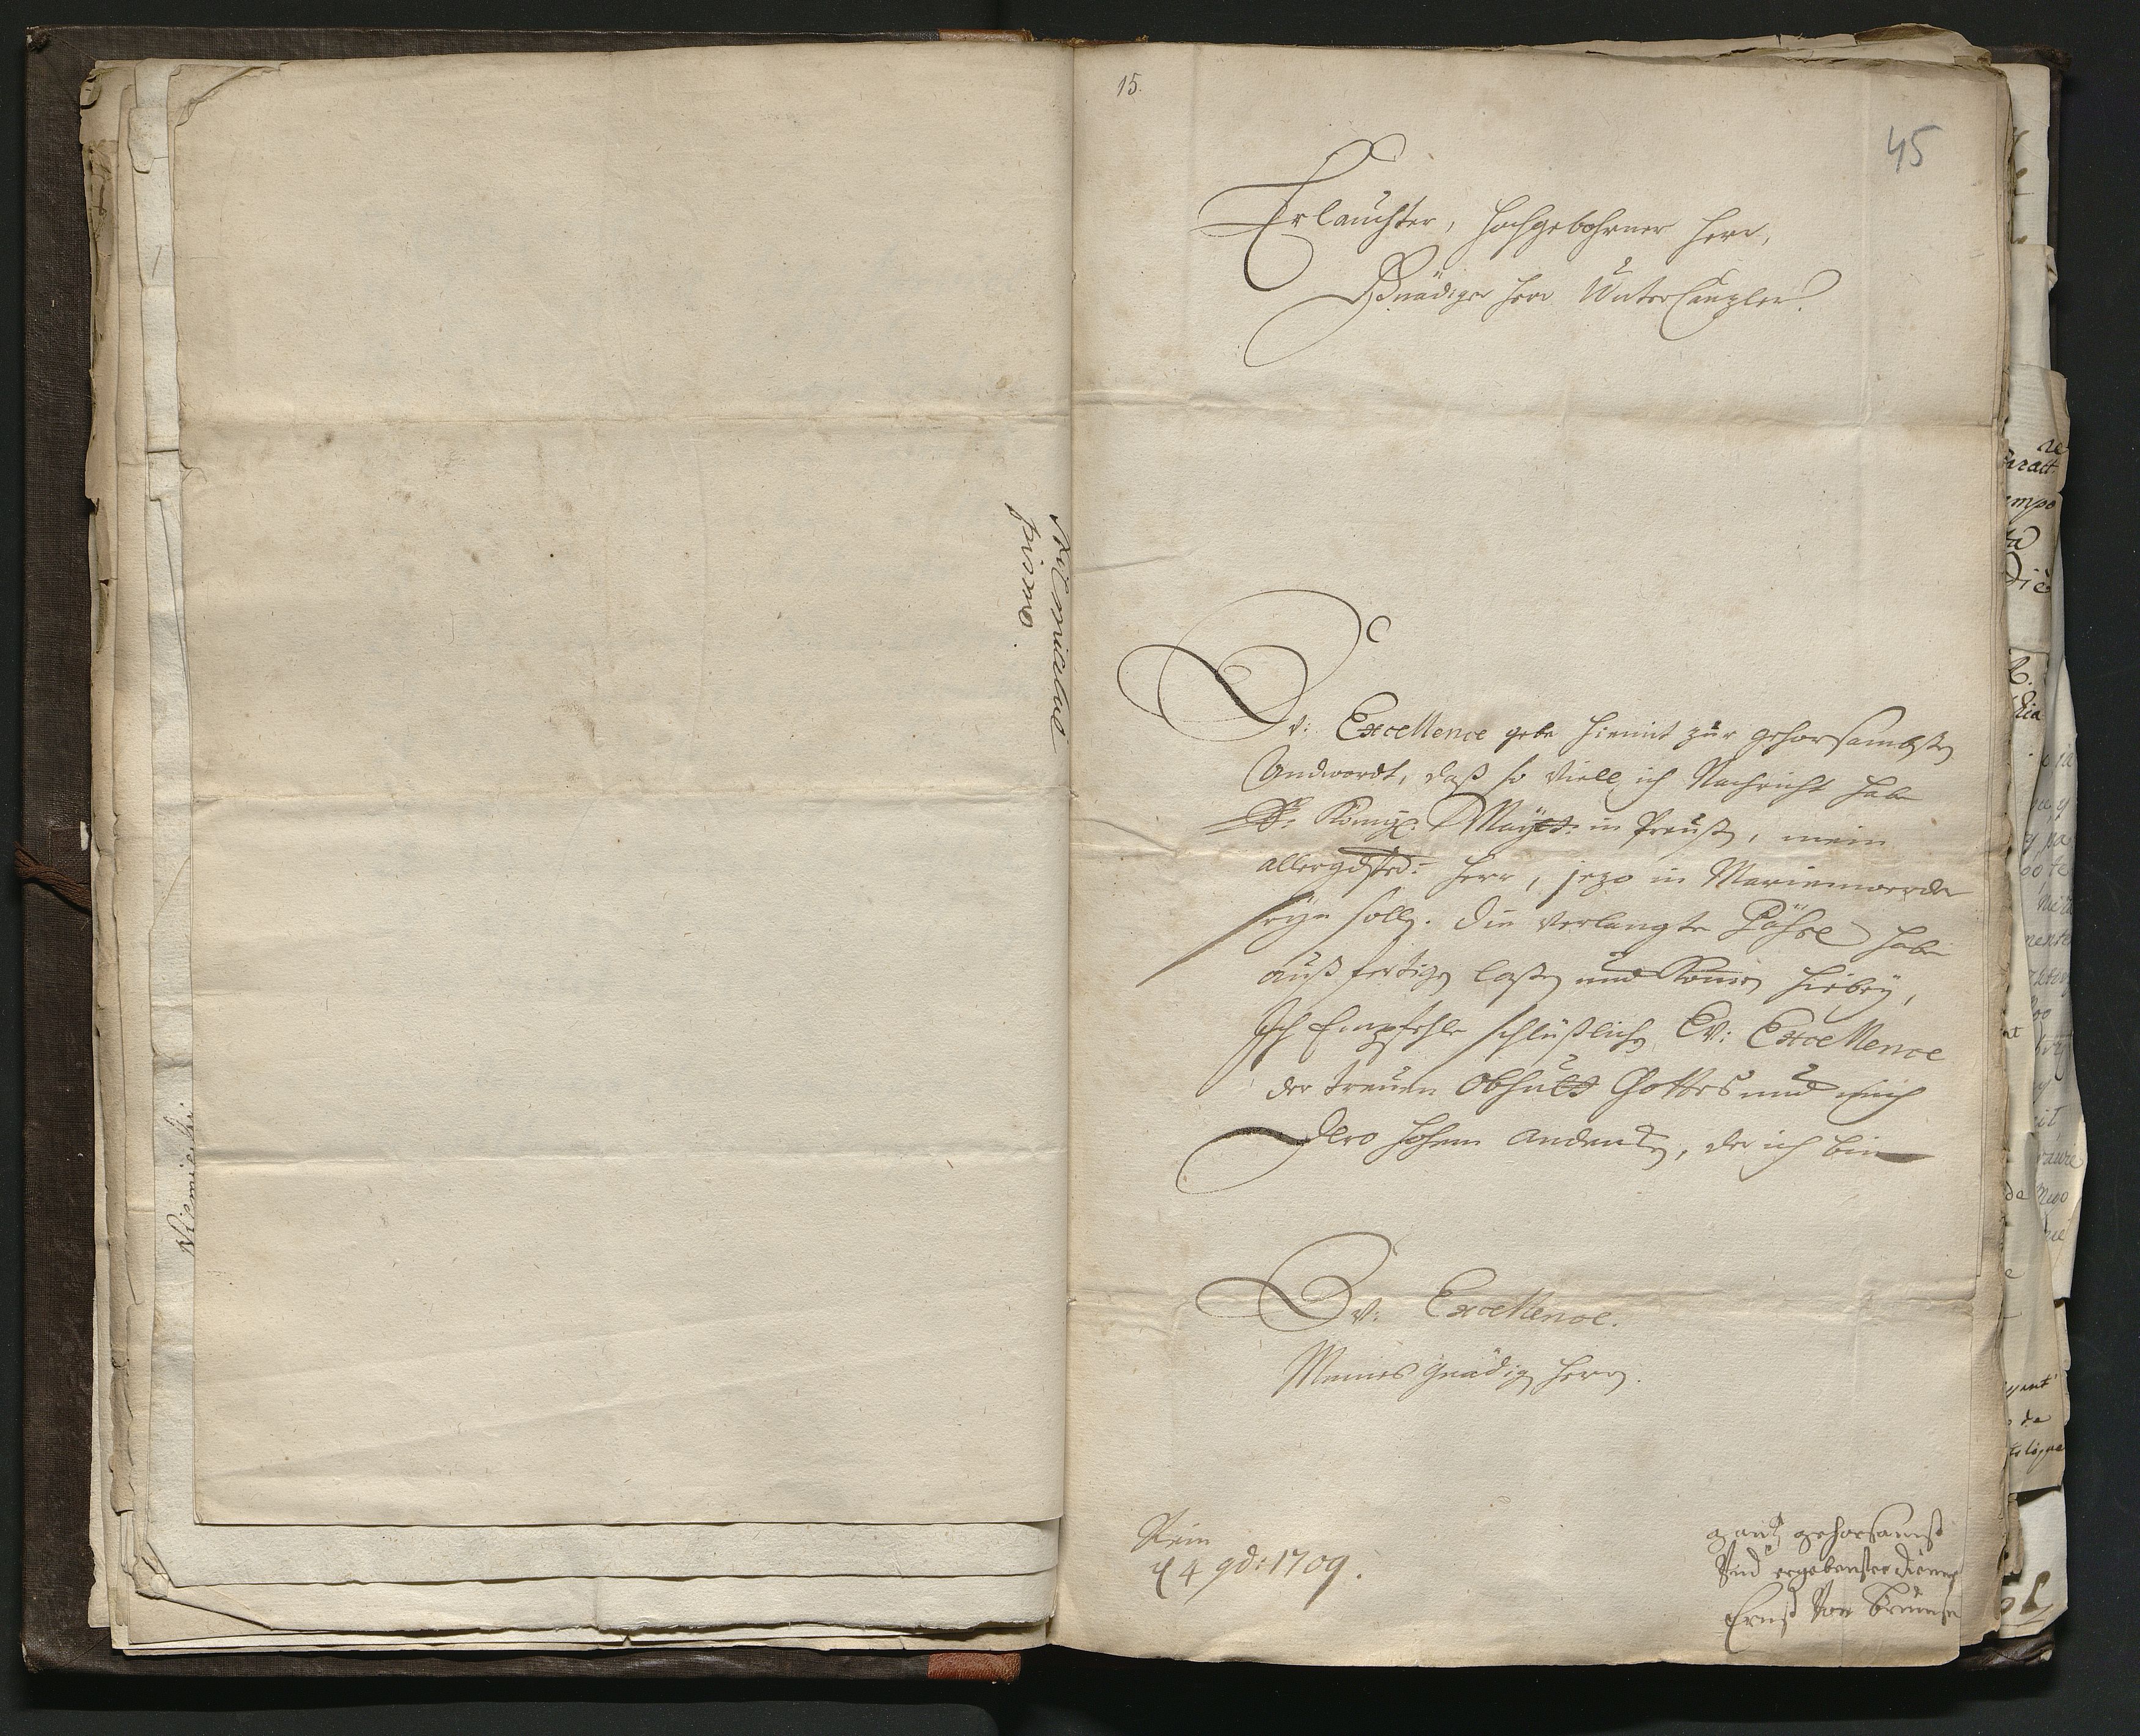 15.
45
Erlauchter, Hochgebohrner Herr,
Gnädiger Herr UnterCanzler.
Ew: Excellence gebe hiemit zur gehorsambsten
Andwordt, daß so Viell ich Nachricht habe
Sr. Königl: Mayst: in Preußen, mein
allergdster: Herr, jezo in Marienwerder
seyn sollen. Die verlangte Pässe habe
außfertigen laßen und komen hiebey,
Ich Empfehle schlüßlichen Ew: Excellence
der treuen Obhult Gottes und mich
Dero hohem Andencken, der ich bin
Ew: Excellence.
Meines gnädigen Herrn.
Rein
d 4 9d: 1709.
gantz gehorsamst
Und ergebenster diener
Ernst Von
primo